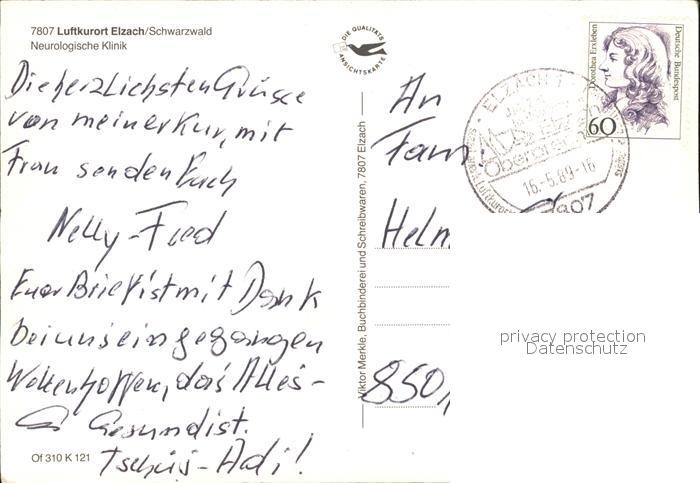 7807 Luftkurort Elzach/Schwarzwald
Neurologische Klinik
Die herzlichsten Grüsse
von meiner Kur, mit
Frau sonden Bach
Nelly-Fred
Euer Brief ist mit Dank
bei uns eingegangen
Wollen hoffen, das Alles
Gesund ist.
Tschüs-Adi!
Of 310 K 121
DIE QUALITÄTS
ANSICHTSKARTE
Viktor Merkle, Buchbinderei und Schreibwaren, 7807 Elzach
An
Fam.
Helm
850
ELZACH
16.-5.89-16
7807
Dorothea Erxleben
Deutsche Bundespost
60
privacy protection
Datenschutz